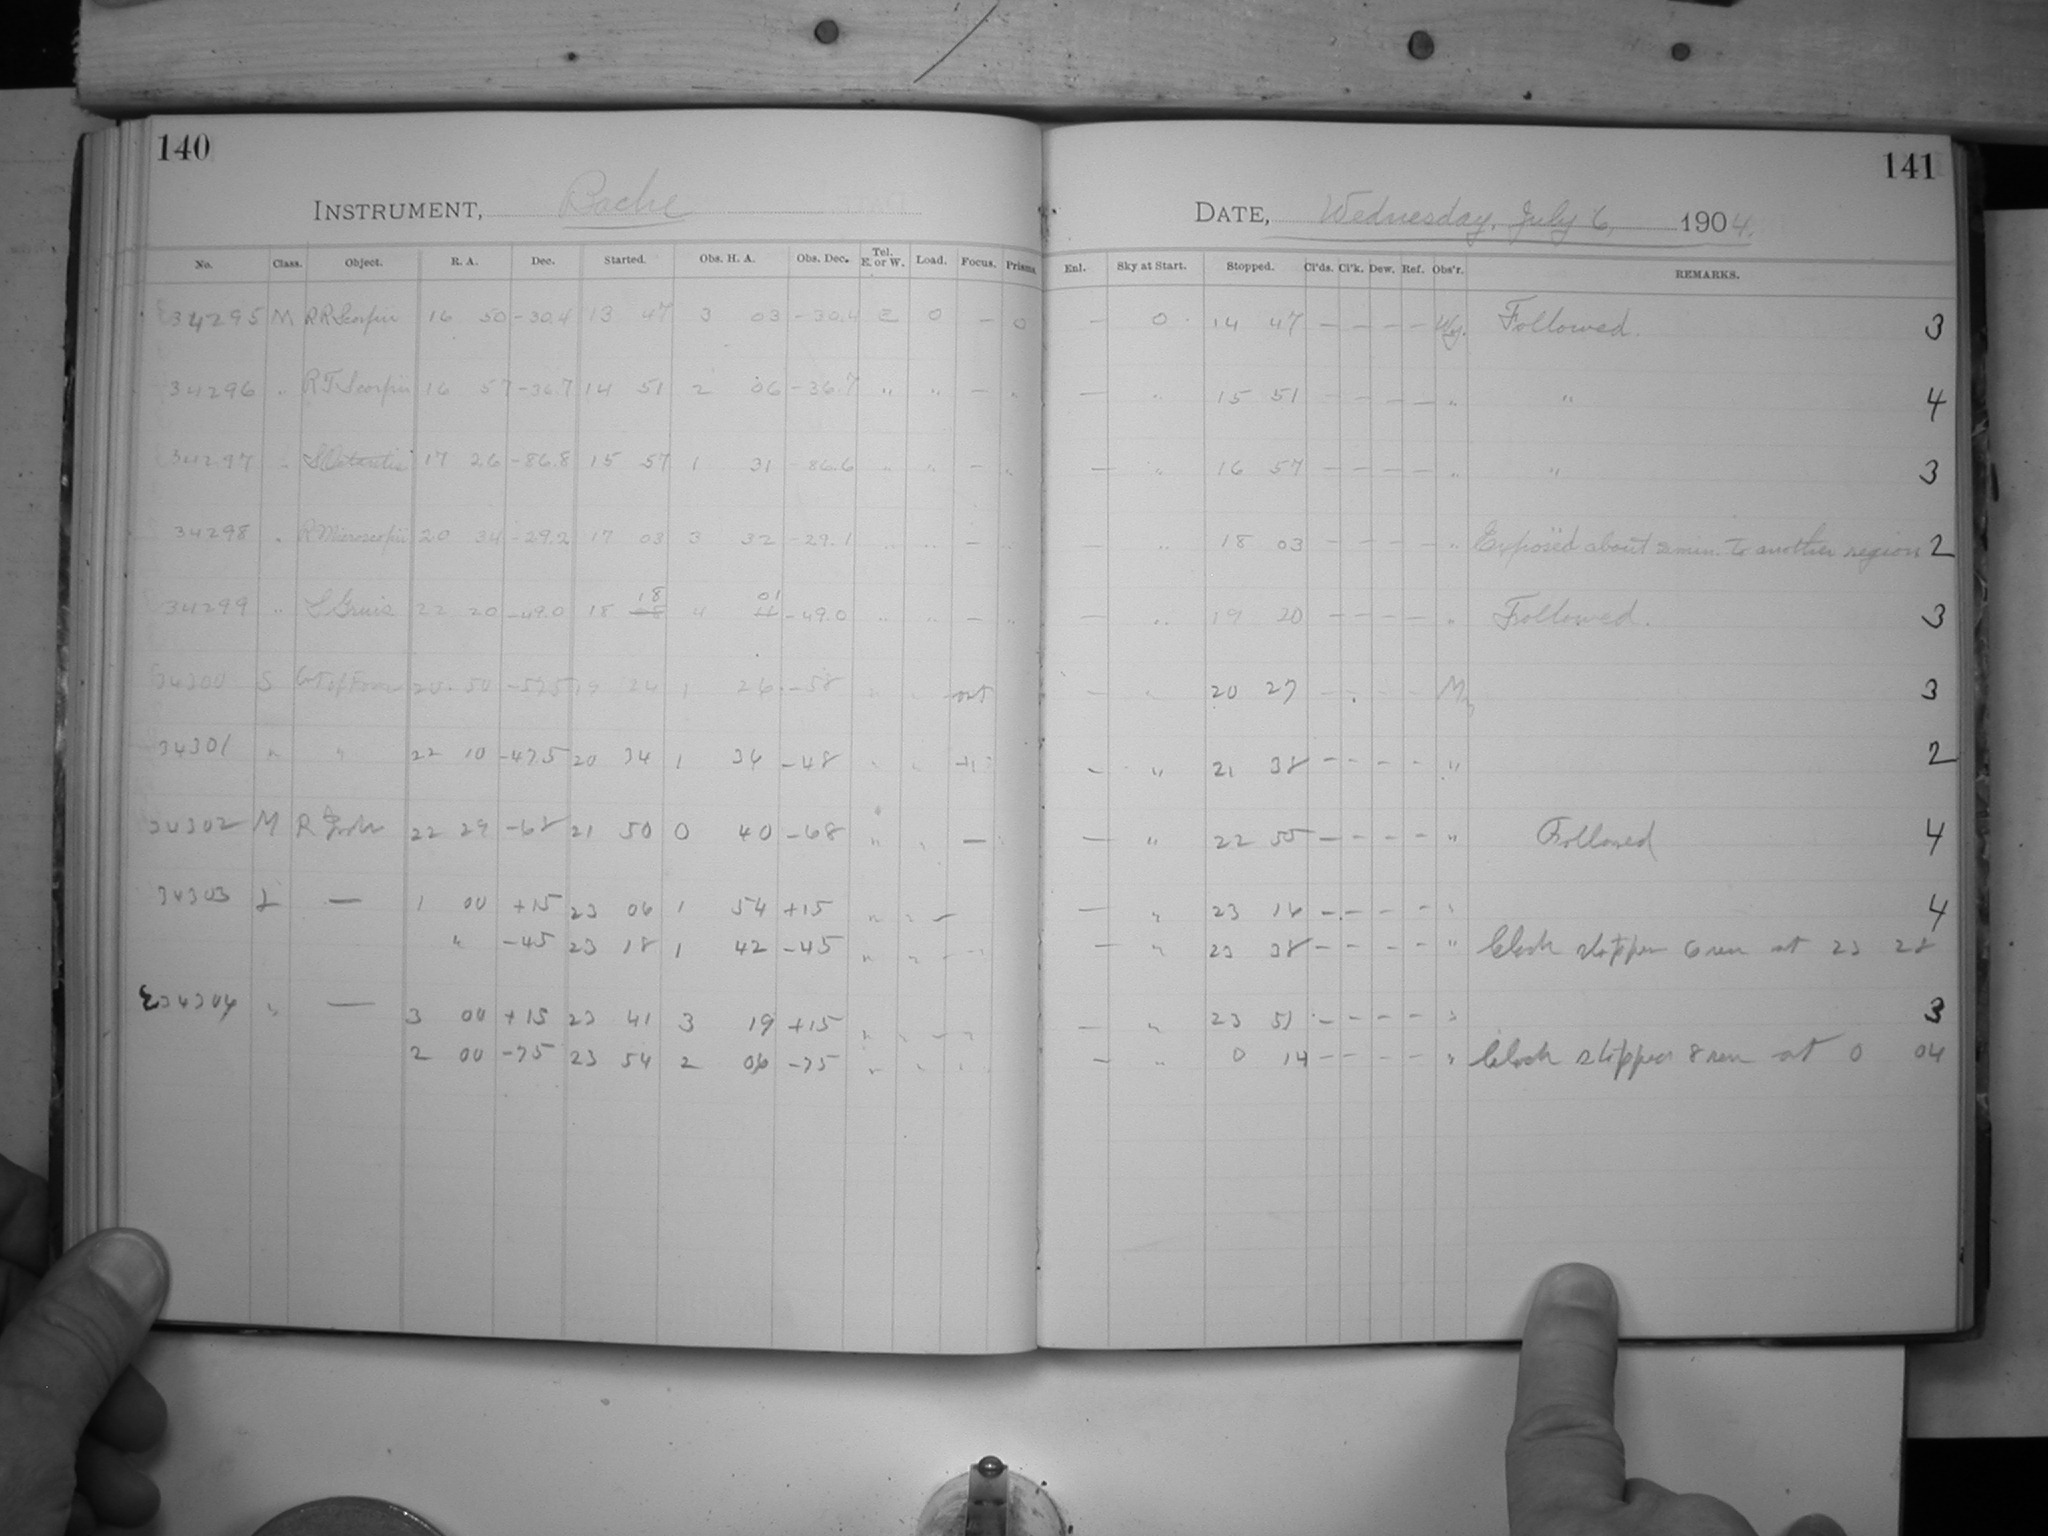 140
INSTRUMENT, Bache
No. Class. Object. R. A. Dec. Started. Obs. H. A. Obs. Dec. Tel. E. or W. Load. Focus. Prisms.
34295 M RR Scorpii 16 50 -30.4 13 47 3 03 -30.4 E 0 — 0
34296 " RT Scorpii 16 57 -36.7 14 51 2 06 -36.7 " " — "
34297 " S Octantis 17 26 -86.8 15 57 1 31 -86.6 " " — "
34298 " R Microscopii 20 34 -29.2 17 03 3 32 -29.1 " " — "
34299 " S Gruis 22 20 -49.0 18 18 4 01 -49.0 " " — "
34300 S 20 50 -57.5 19 24 1 26 -58 " "
34301 " " 22 10 -47.5 20 34 1 34 -48 " "
34302 M R 22 29 -68 21 50 0 40 -68 " " —
34303 L — 1 00 +15 23 06 1 54 +15 " " —
" -45 23 18 1 42 -45 " " —
34304 " — 3 00 +15 23 41 3 19 +15 " " —
2 00 -75 23 54 2 06 -75 " "
141
DATE, Wednesday, July 6, 1904.
Enl. Sky at Start. Stopped. Cl'ds. Cl'k. Dew. Ref. Obs'r. REMARKS.
— 0 14 47 — — — — Wy. Followed. 3
— " 15 51 — — — — " " 4
— " 16 57 — — — — " " 3
— " 18 03 — — — — " Exposed about 2 min. to another region 2
— " 19 20 — — — — " Followed. 3
— " 20 27 — — — 3
— " 21 38 — — — — " 2
— " 22 55 — — — — " Followed 4
— " 23 16 — — — — " 4
— " 23 38 — — — — " Clock stopped 6 min at 23 28
— " 23 51 — — — — " 3
— " 0 14 — — — — " Clock stopped 8 min at 0 04